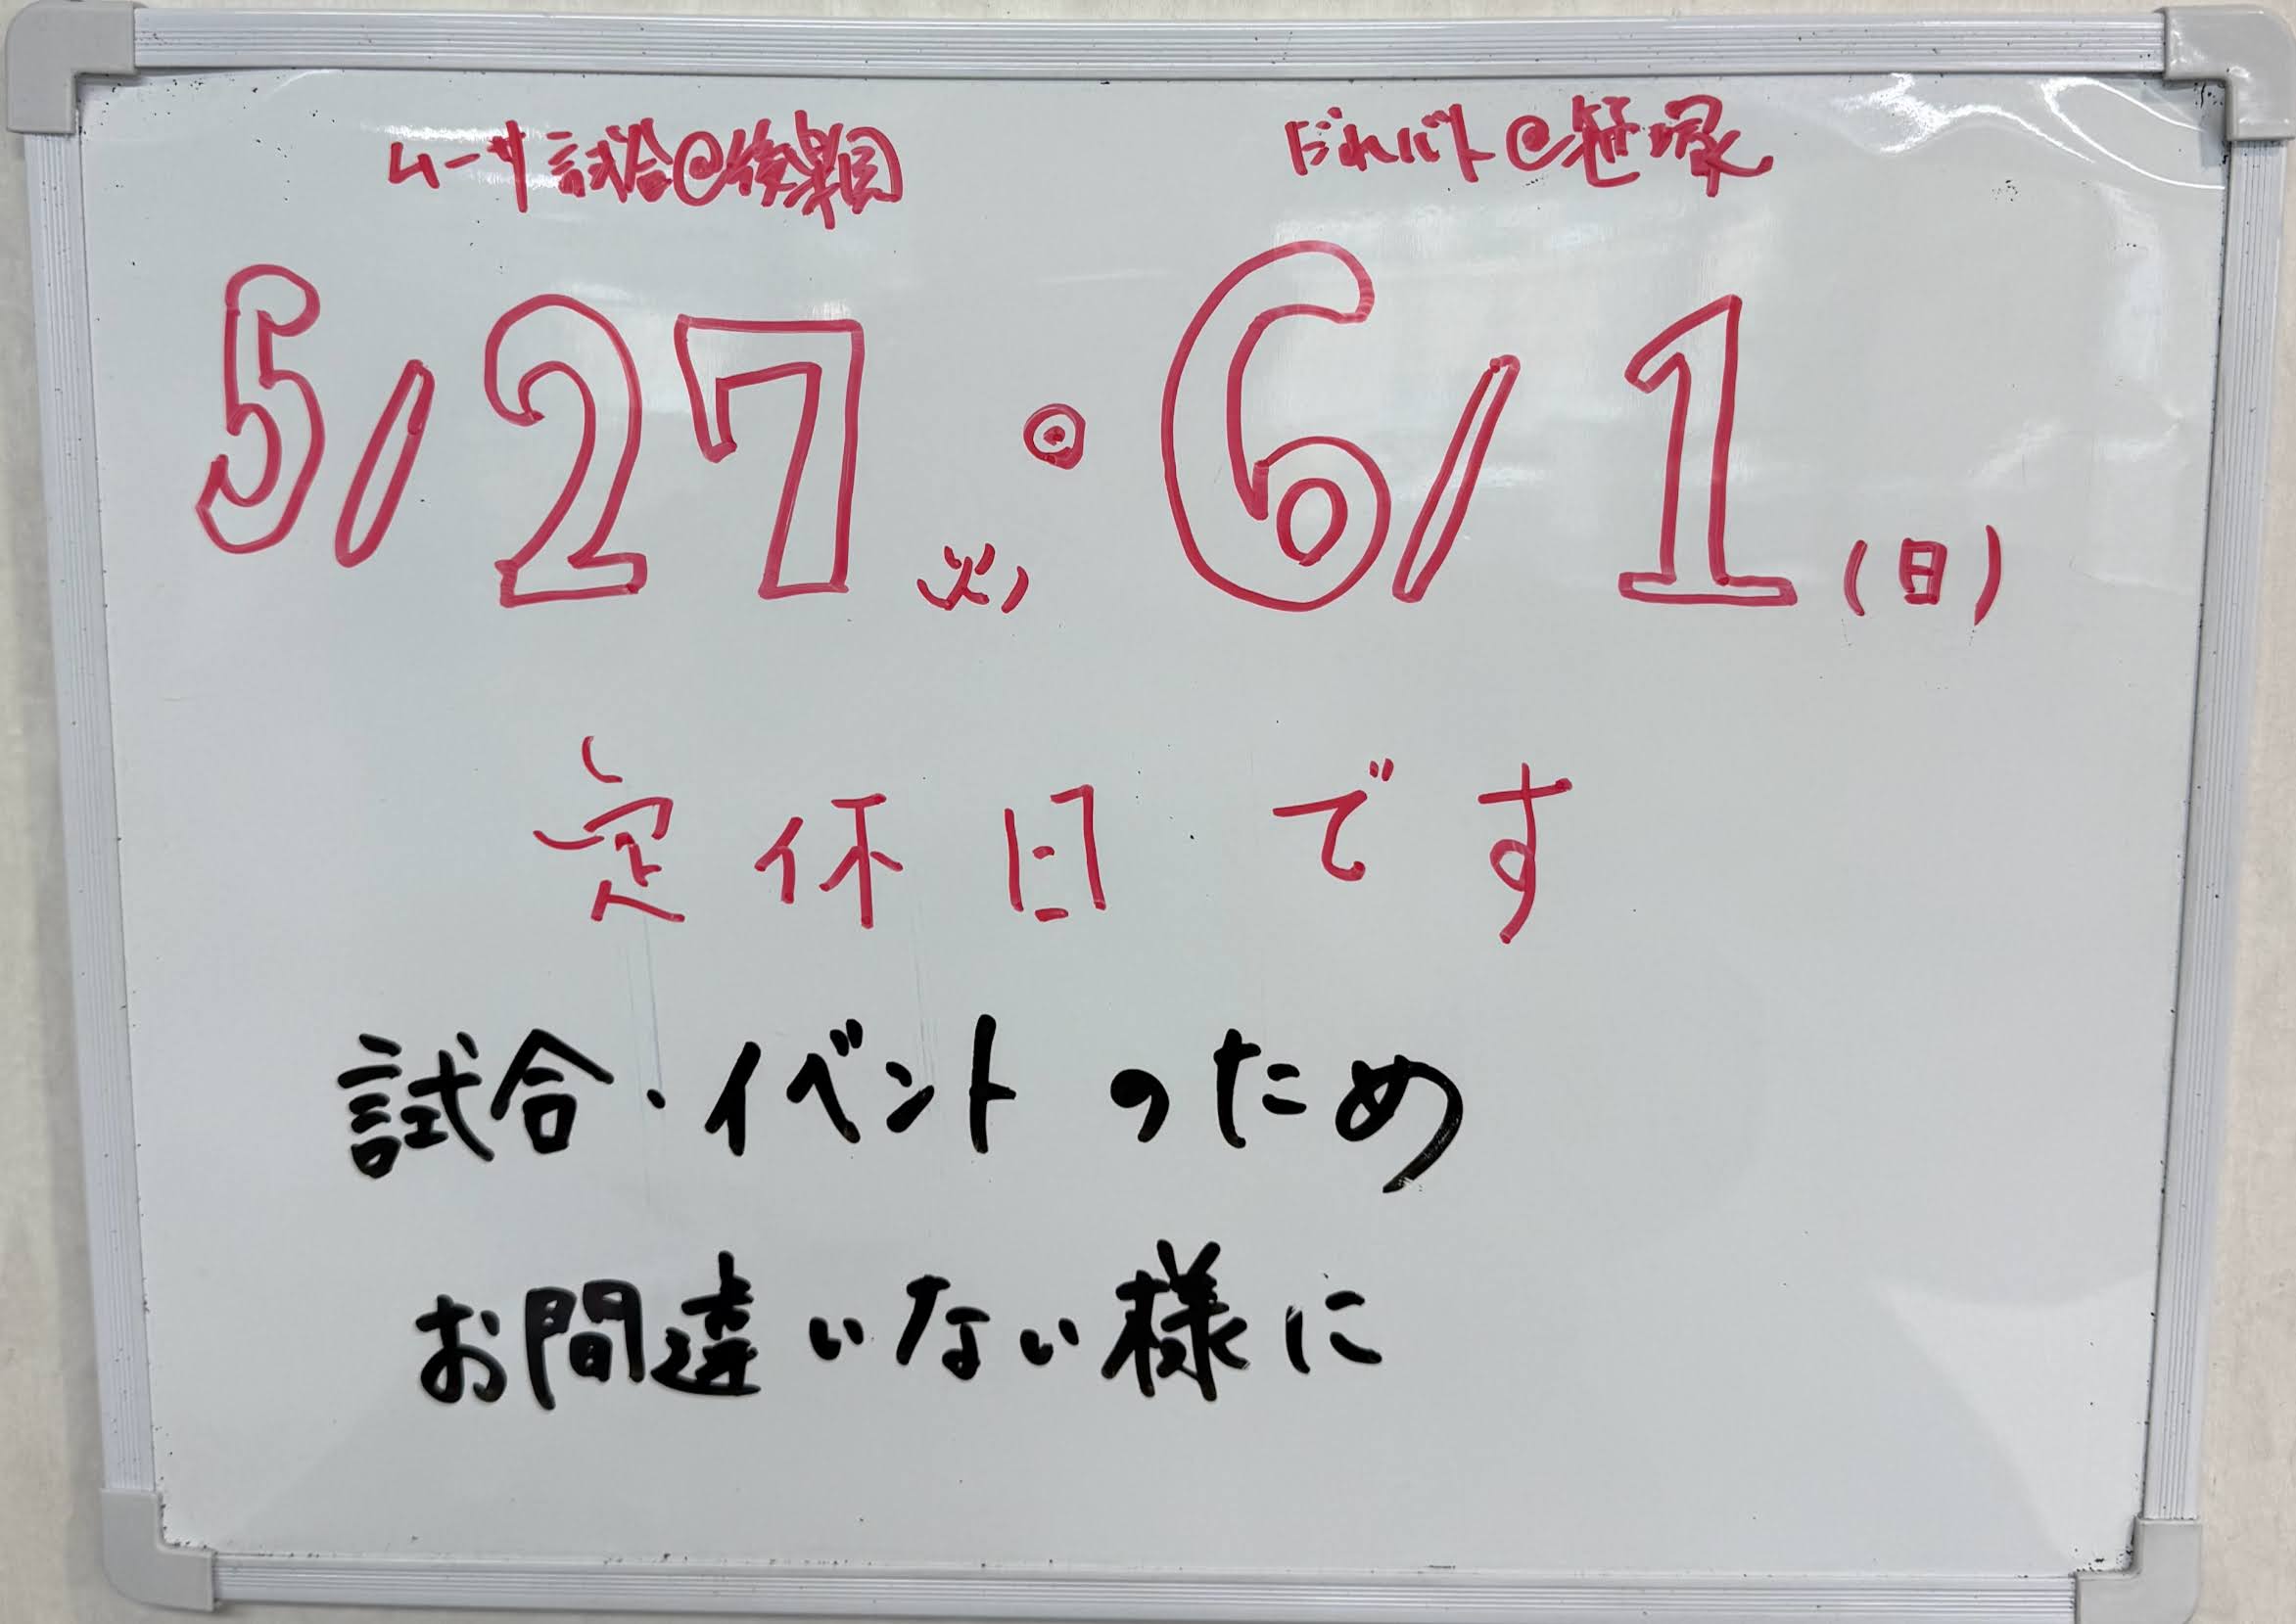 ムーサ試合@後楽園　だれバト@笹塚
5/27(火)・6/1(日)
定休日です
試合・イベントのため
お間違いない様に